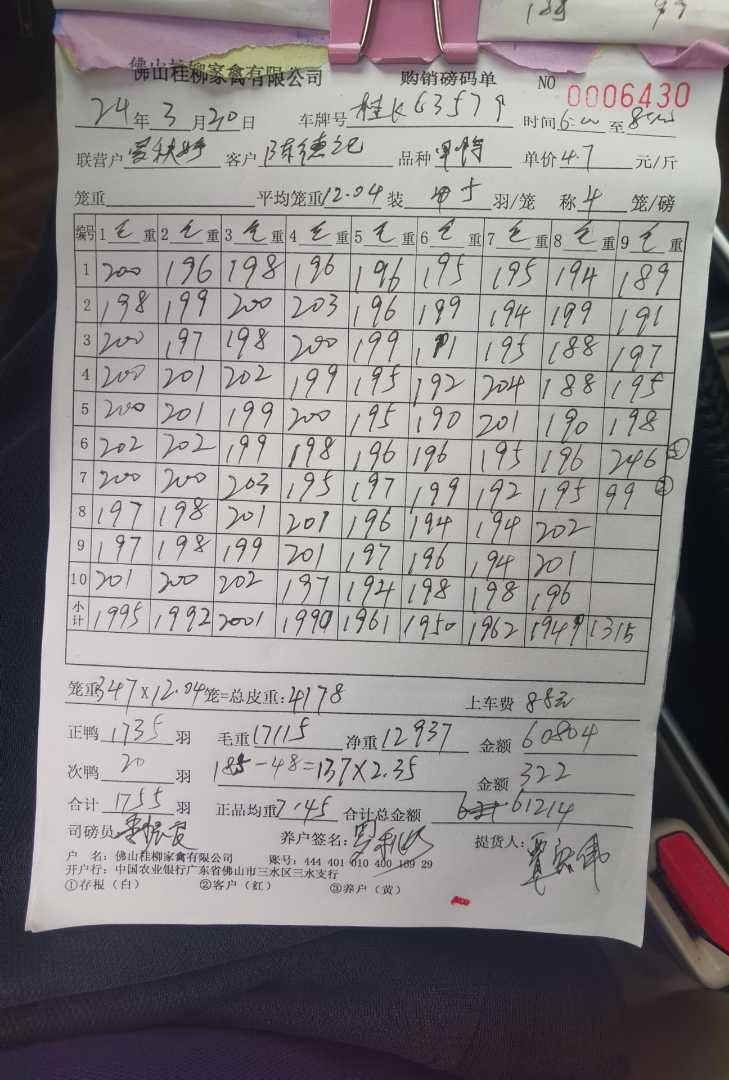 佛山桂柳家禽有限公司 购销磅码单 NO 0006430
24年3月20日 车牌号 桂K63579 时间6:00至8:00
联营户 客户 陈德记 品种 单价4.7元/斤
笼重 平均笼重12.04装 5羽/笼 称4笼/磅
编号 1毛重 2毛重 3毛重 4毛重 5毛重 6毛重 7毛重 8毛重 9毛重
1 200 196 198 196 196 195 195 194 189
2 198 199 200 203 196 199 194 199 191
3 200 197 198 200 199 191 195 188 197
4 200 201 202 199 195 192 204 188 195
5 200 201 199 200 195 190 201 190 198
6 202 202 199 198 196 196 195 196 246 ⑤
7 200 200 203 195 197 199 192 195 99 ②
8 197 198 201 201 196 194 194 202
9 197 198 199 201 197 196 194 201
10 201 200 202 197 194 198 198 196
小计 1995 1992 2001 1990 1961 1950 1962 1949 1315
笼重347×12.04笼=总皮重:4178 上车费 88元
正鸭1735羽 毛重17115 净重12937 金额 60804
次鸭 20 羽 185-48=137×2.35 金额 322
合计1755羽 正品均重7.45 合计总金额 61214
司磅员 养户签名: 提货人:
户 名: 佛山桂柳家禽有限公司 账号: 444 401 010 400 169 29
开户行: 中国农业银行广东省佛山市三水区三水支行
①存根（白） ②客户（红） ③养户（黄）